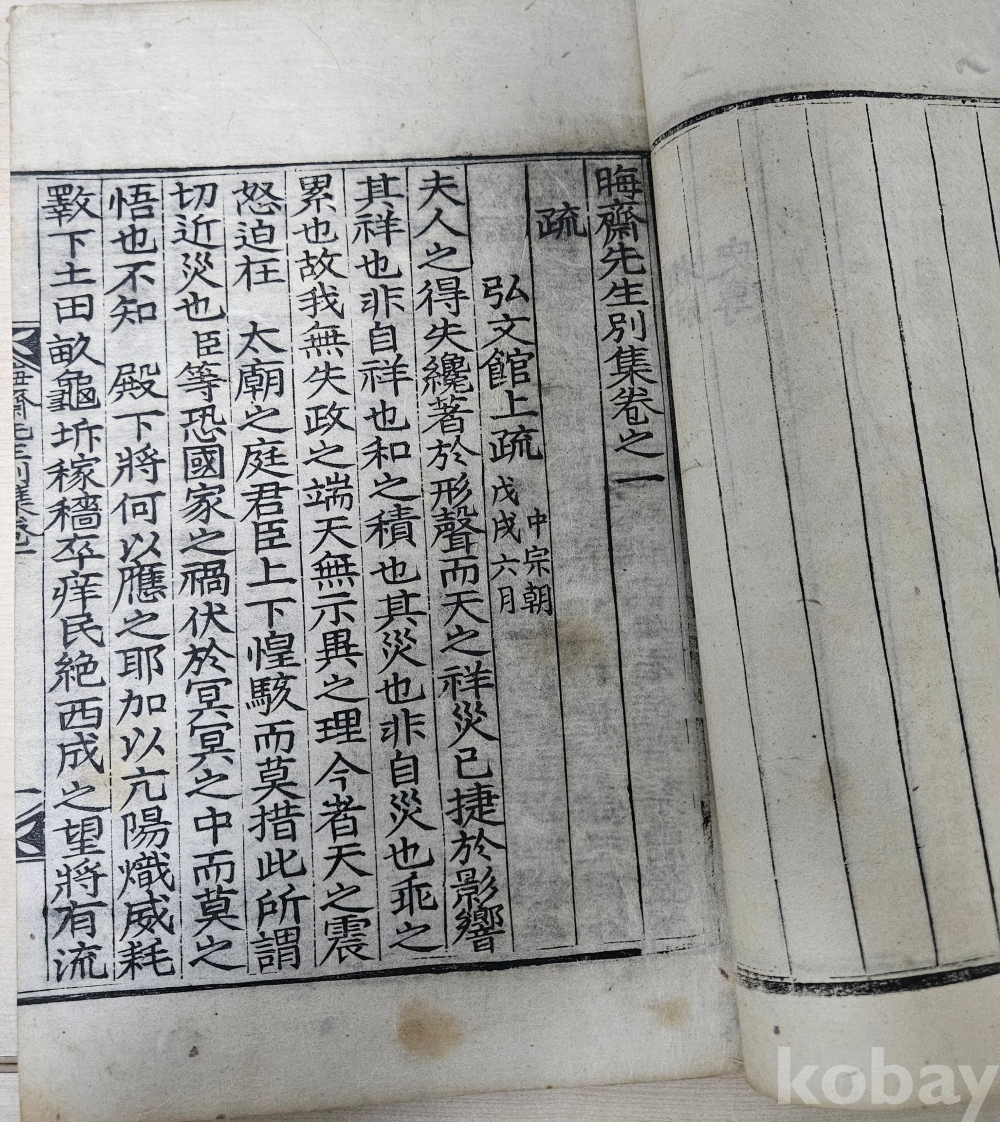 晦齋先生別集卷之一
疏
弘文館上疏 中宗朝
戊戌六月
夫人之得失纔著於形聲而天之祥災已捷於影響
其祥也非自祥也和之積也其災也非自災也乖之
累也故我無失政之端天無示異之理今者天之震
怒迫在 太廟之庭君臣上下惶駭而莫措此所謂
切近災也臣等恐國家之禍伏於冥冥之中而莫之
悟也不知 殿下將何以應之耶加以亢陽熾威耗
斁下土田畝龜坼稼穡卒痒民絶西成之望將有流
晦齋先生別集卷一
一
kobay